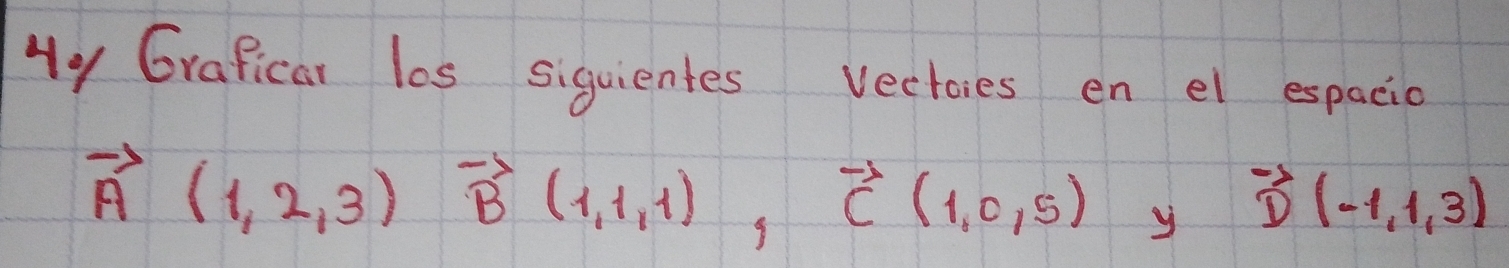 4º/ Graficar los siguientes vectores en el espacio
A⃗ (1,2,3) B⃗ (1,1,1), C⃗ (1,0,5) y D⃗ (-1,1,3)